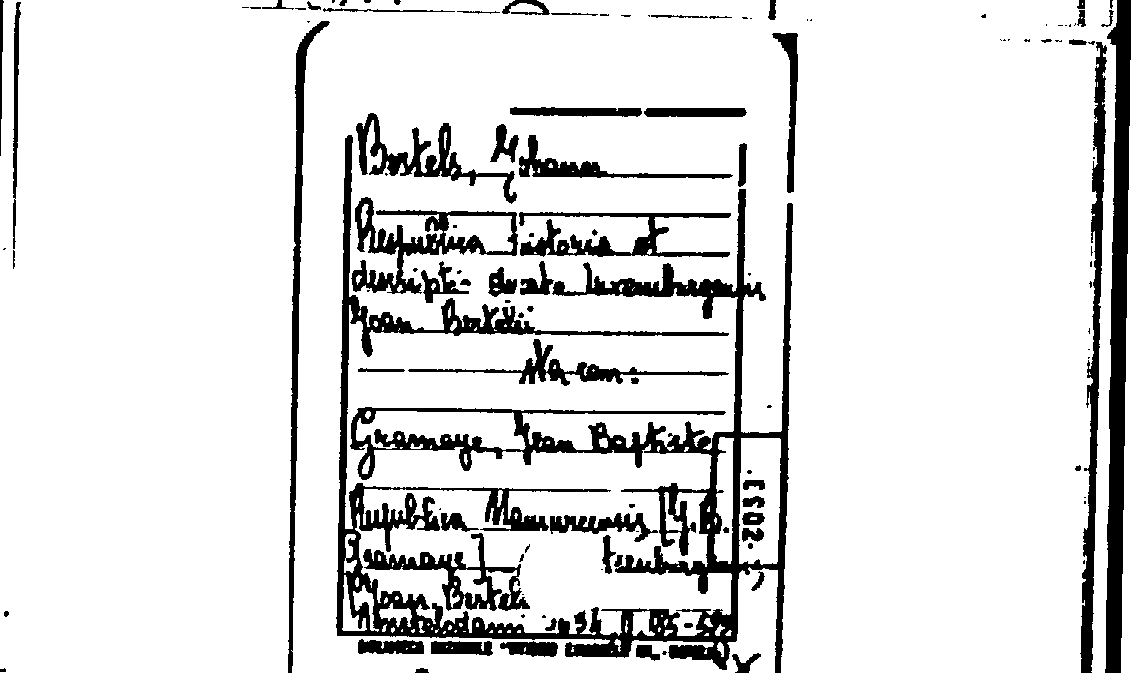 Bertels, Johann
Respublica historia et
descript. ducate Luxemburgensis
Joan. Bertelii
Na com:
Gramaye, Jean Baptiste
Respublica Namurcensis [J.B.
Gramaye]
Joan. Berteli
Amstelodami 1634 p.
BIBLIOTECA NAZIONALE "VITTORIO EMANUELE III" - NAPOLI